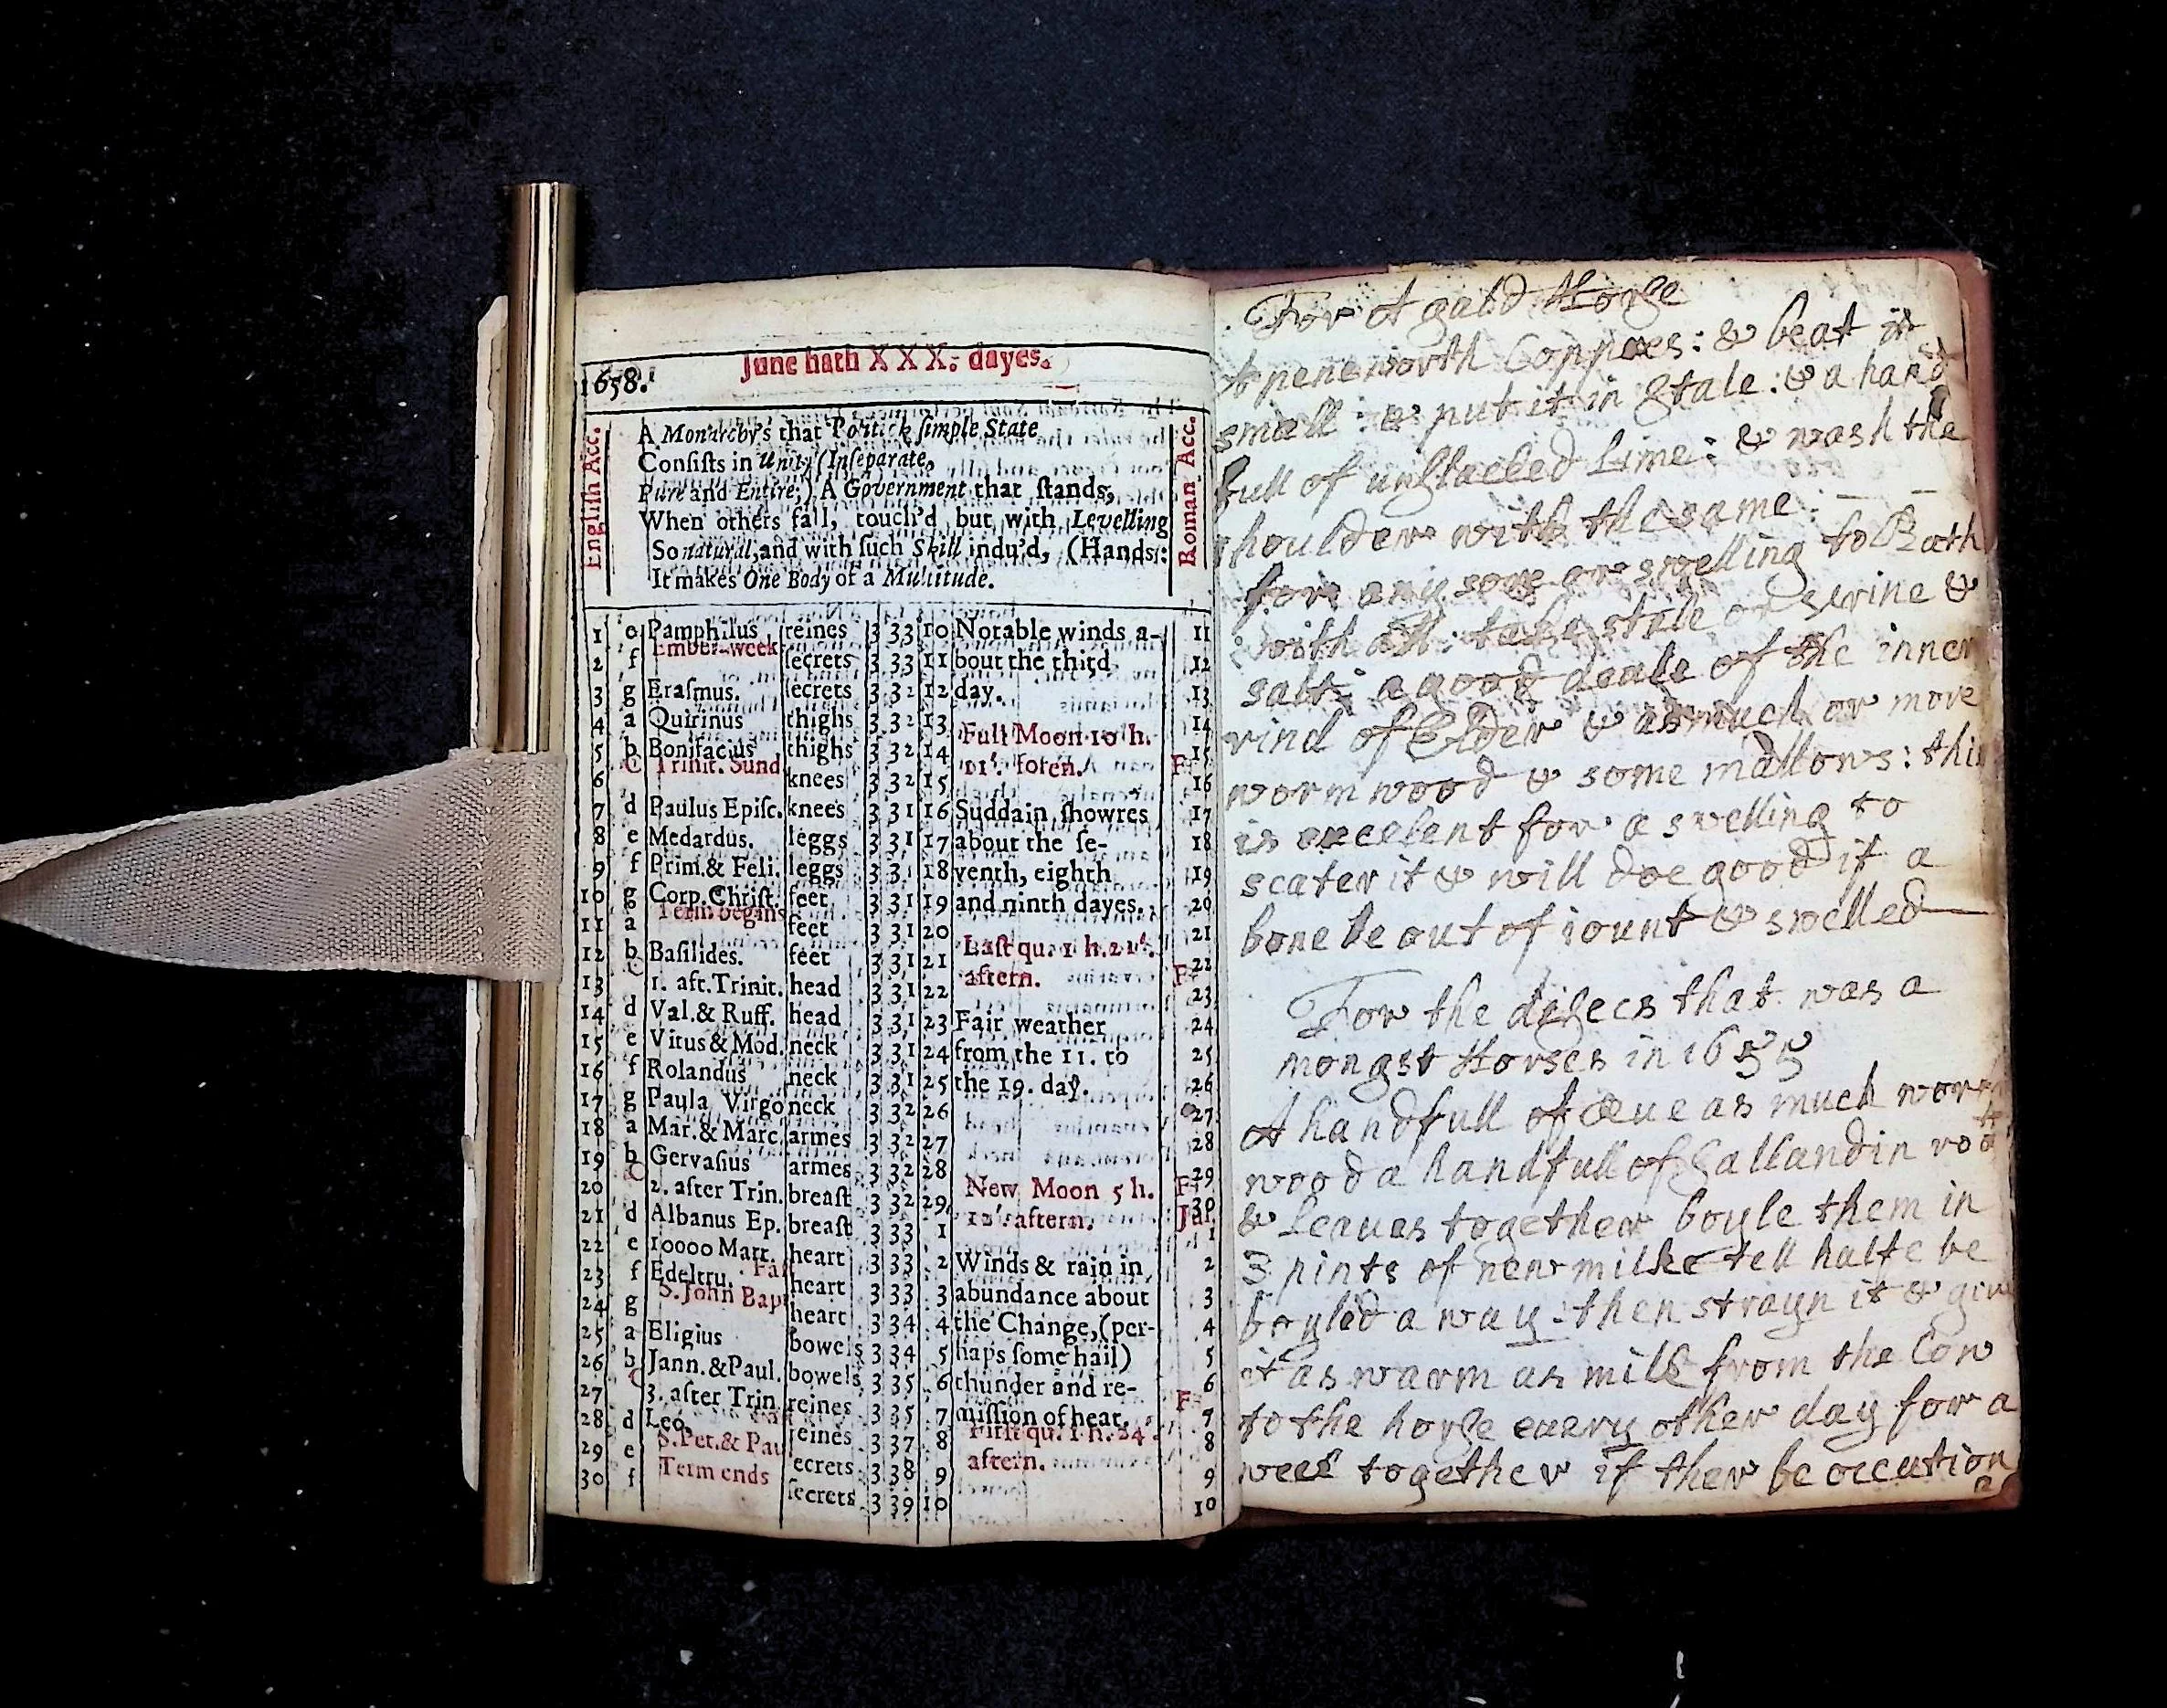 June hath XXX. dayes.
1658.
English Acc.
A Monarchy's that Politick simple State
Consists in Unity (Inseparate,
Pure and Entire;) A Government that stands,
When others fall, touch'd but with Levelling
So natural, and with such Skill indu'd, (Hands:
It makes One Body of a Multitude.
Roman Acc.
1 e Pamphilus reines 3 33 10 Notable winds a- 11
Ember-week
2 f secrets 3 33 11 bout the third 12
3 g Erasmus. secrets 3 32 12 day. 13
4 a Quirinus thighs 3 32 13 14
Full Moon 10 h.
5 b Bonifacius thighs 3 32 14 15
C Trinit. Sund 11'. foren. F
6 knees 3 32 15 16
7 d Paulus Episc. knees 3 31 16 Suddain showres 17
8 e Medardus. leggs 3 31 17 about the se- 18
9 f Prim.& Feli. leggs 3 31 18 venth, eighth 19
10 g Corp. Christ. feet 3 31 19 and ninth dayes. 20
Term begins
11 a feet 3 31 20 21
Last qu. 1 h. 21'.
12 b Basilides. feet 3 31 21 22
C aftern. F
13 1. aft. Trinit. head 3 31 22 23
14 d Val.& Ruff. head 3 31 23 Fair weather 24
15 e Vitus & Mod. neck 3 31 24 from the 11. to 25
16 f Rolandus neck 3 31 25 the 19. day. 26
17 g Paula Virgo neck 3 32 26 27
18 a Mar.& Marc. armes 3 32 27 28
19 b Gervasius armes 3 32 28 29
C New Moon 5 h. F
20 2. after Trin. breast 3 32 29 30
12'. aftern. Jul.
21 d Albanus Ep. breast 3 33 1 1
22 e 10000 Marr. heart 3 33 2 Winds & rain in 2
23 f Edeltru. heart 3 33 3 abundance about 3
S. John Bap
24 g heart 3 34 4 the Change, (per- 4
25 a Eligius bowels 3 34 5 haps some hail) 5
26 b Jann.&Paul. bowels 3 35 6 thunder and re- 6
C F
27 3. after Trin reines 3 35 7 mission of heat. 7
28 d Leo. reines 3 37 8 First qu. 1 h. 24'. 8
S. Pet.& Pau
29 e secrets 3 38 9 aftern. 9
Term ends
30 f secrets 3 39 10 10
For A gald Horse
A peneworth Coppres: & beat it
small: & put it in Stale: & a hand
full of unslacked Lime: & wash the
shoulder with the same:
for any sore or swelling to Bath
with all: take stale or urine &
salt: a good deale of the inner
rind of Elder & as much or more
wormwood & some mallows: this
is excelent for a swelling to
scater it & will doe good if a
bone be out of iount & swelled
For the disecs that was a
mongst Horses in 1655
A handfull of Rue as much worm
wood a handfull of Sallandin roo
& Leaues together boyle them in
3 pints of new milke tell halfe be
boyled away: then strayn it & give
it as warm as milk from the Cow
to the horse euery other day for a
week together if ther be occation